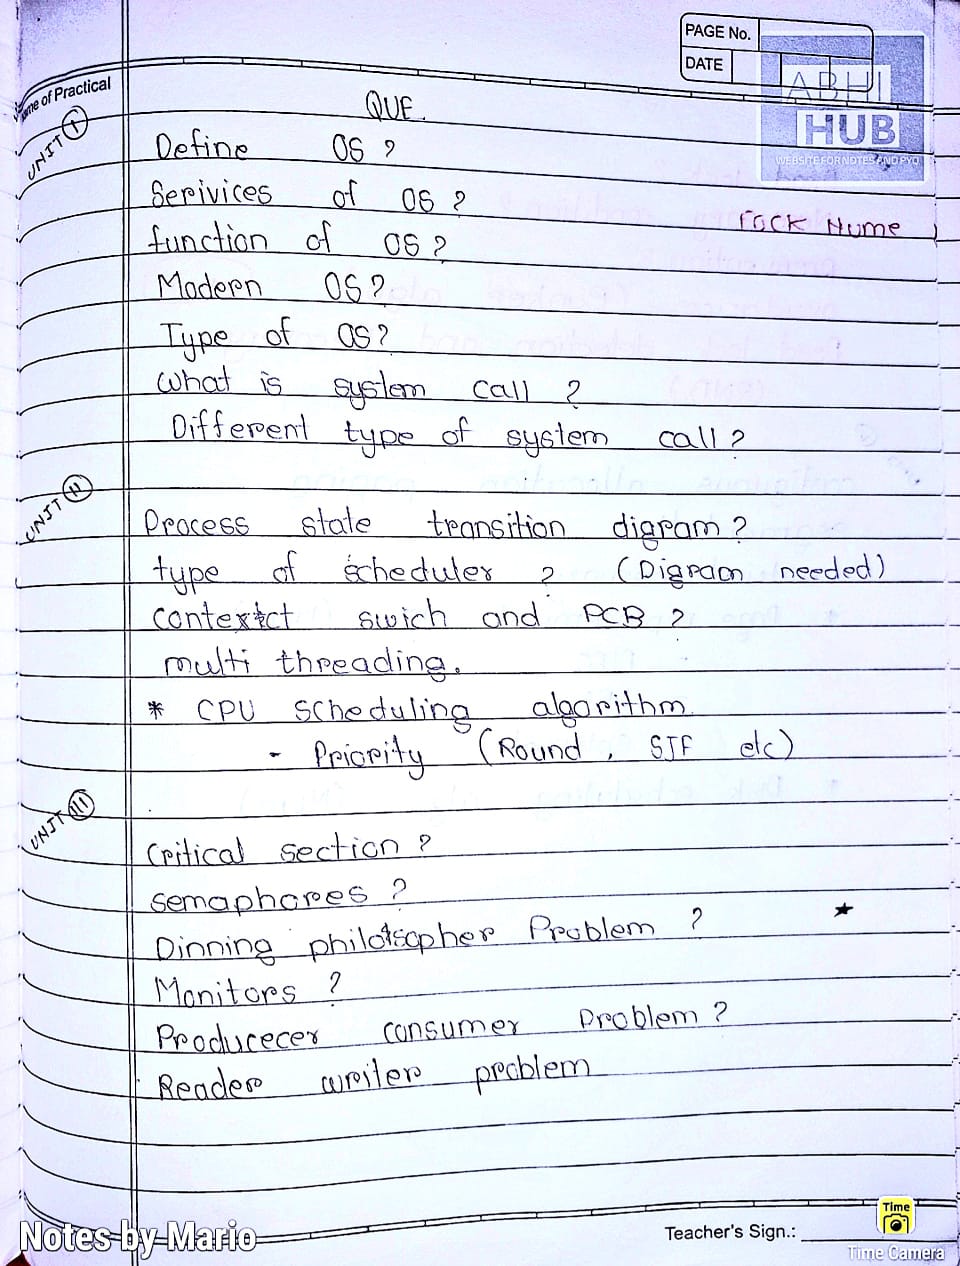 PAGE No.
DATE
ABHI
HUB
WEBSITE FOR NOTES AND PYQ
me of Practical
QUE.
UNIT I
Define OS ?
Serivices of OS ?
function of OS ?
Modern OS ?
Type of OS ?
What is system call ?
Different type of system call ?
UNIT II
Process state transition digram ?
type of scheduler ? (Digraam needed)
contexct swich and PCB ?
multi threading.
* CPU scheduling algorithm.
- Priority (Round, SJF etc)
UNIT III
Critical section ?
semaphores ?
Dinning philosopher Problem ? ★
Monitors ?
Producecer consumer Problem ?
Reader writer problem
Notes by Mario
Teacher's Sign.:
Time
Time Camera